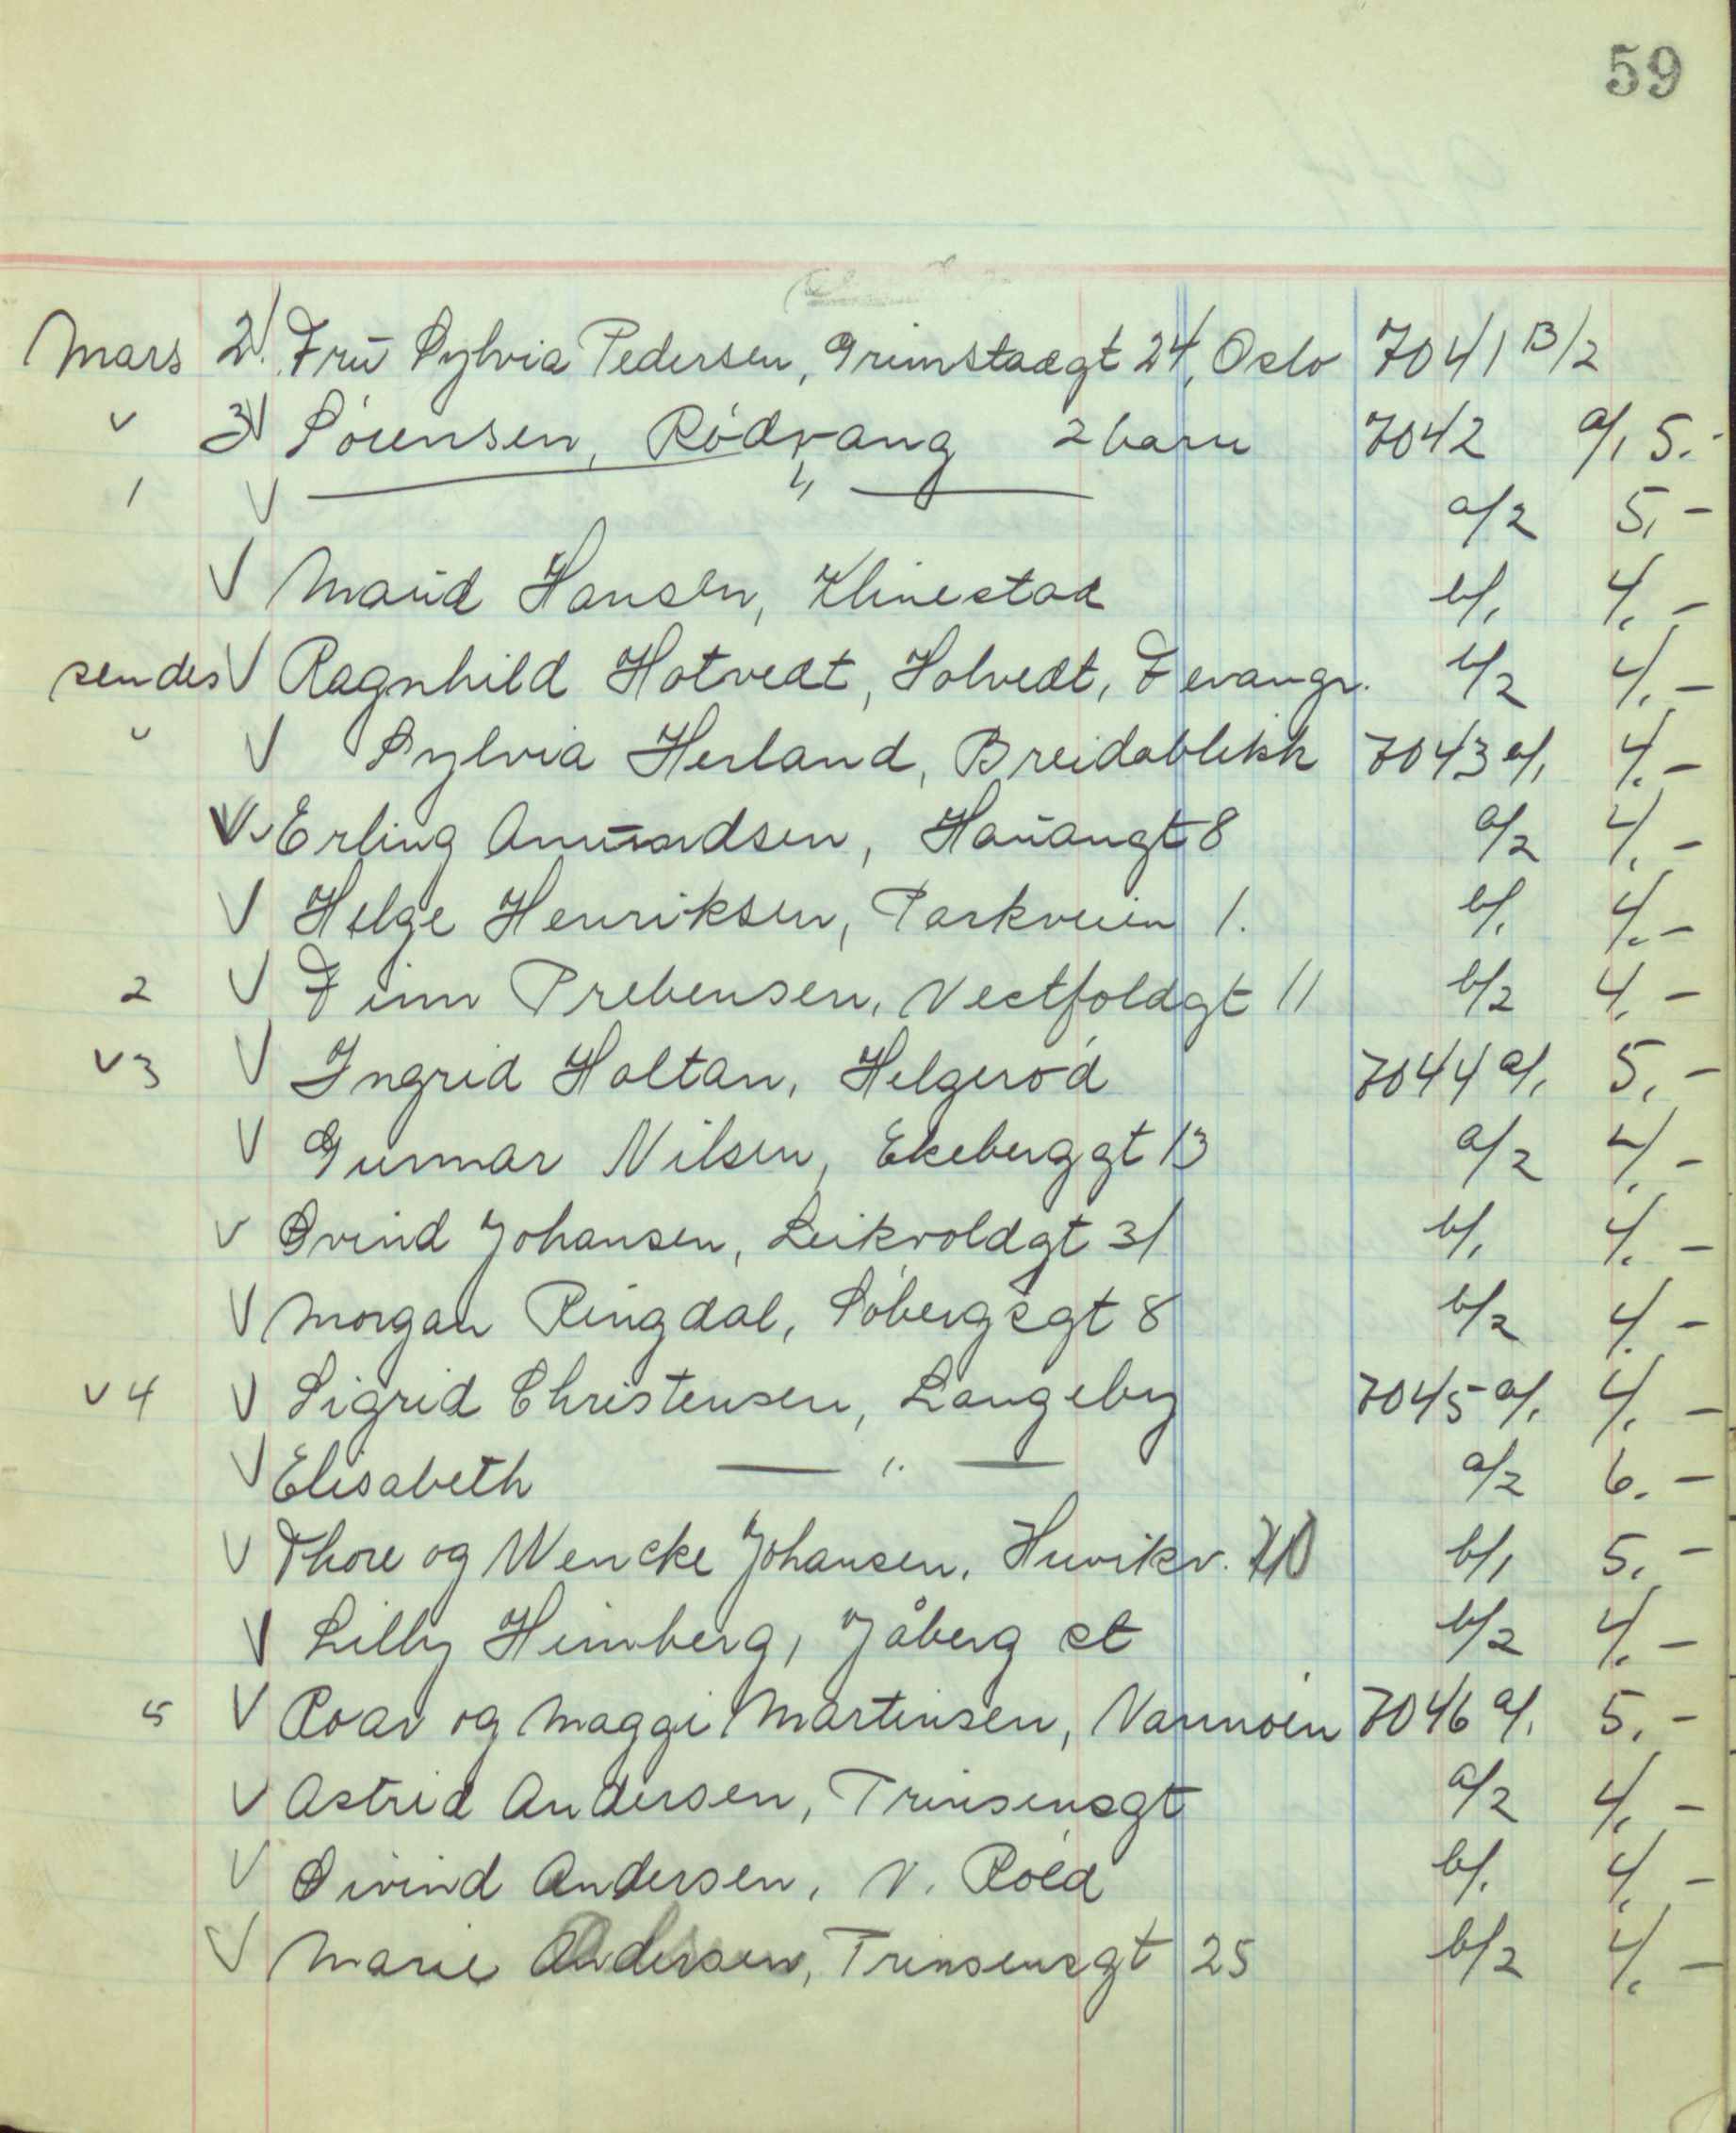 59
Mars 2. Fru Sylvia Pedersen, Grimstadgt 24, Oslo 7041 B/2
" 3 Sørensen, Rødvang 2 barn 7042 a/1 5.-
1 V —— " —— a/2 5,-
V Maud Hansen, Klinestad b/1 4.-
sendes V Ragnhild Hotvedt, Holvedt, Fevangr. b/2 4.-
" V Sylvia Herland, Breidablikk 7043 a/1 4.-
V Erling Amundsen, Hauangt 8 a/2 4.-
V Helge Henriksen, Parkveien 1. b/1 4.-
2 V Finn Prebensen, Vestfoldgt 11 b/2 4.-
V 3 V Ingrid Holtan, Helgerød 7044 a/1 5.-
V Gunnar Nilsen, Ekeberggt 13 a/2 4.-
V Øvind Johansen, Leikvoldgt 31 b/1 4.-
V Morgan Ringdal, Søbergsgt 8 b/2 4.-
V 4 V Sigrid Christensen, Langeby 7045 a/1 4.-
V Elisabeth —— " —— a/2 6.-
V Thore og Wencke Johansen, Huvikv. b/1 5.-
V Lilly Heimberg, Jåberg st b/2 4.-
5 V Roar og Maggi Martinsen, Vannøen 7046 a/1 5.-
V Astrid Andersen, Trinsensgt a/2 4.-
V Øivind Andersen, V. Røed b/1 4.-
V Marie Andersen, Trinsensgt 25 b/2 4.-